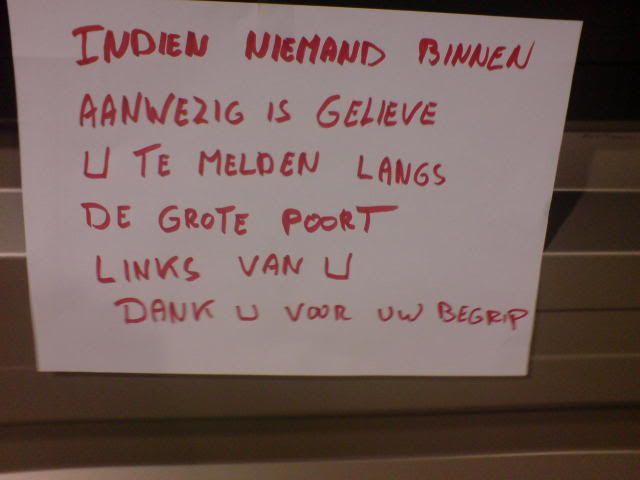 INDIEN NIEMAND BINNEN
AANWEZIG IS GELIEVE
U TE MELDEN LANGS
DE GROTE POORT
LINKS VAN U
DANK U VOOR UW BEGRIP